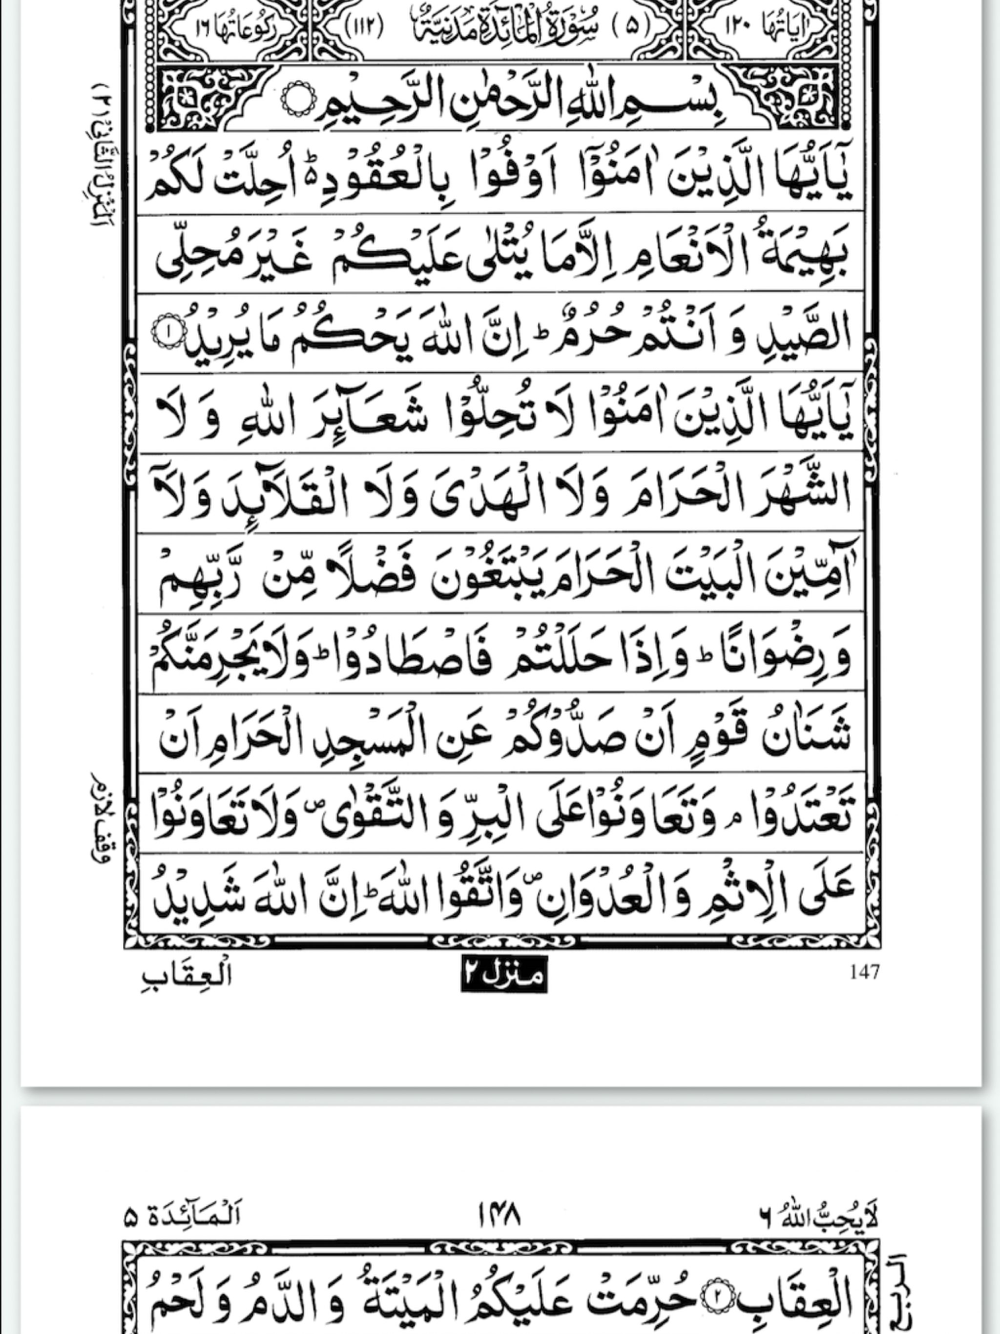 اٰيَاتُهَا ١٢٠ (٥) سُوْرَةُ الْمَآئِدَةِ مَدَنِيَّةٌ (١١٢) رُكُوْعَاتُهَا ١٦
بِسْــمِ اللّٰهِ الرَّحْمٰنِ الرَّحِيْمِ
يٰۤاَيُّهَا الَّذِيْنَ اٰمَنُوْۤا اَوْفُوْا بِالْعُقُوْدِ ؕ اُحِلَّتْ لَكُمْ
بَهِيْمَةُ الْاَنْعَامِ اِلَّا مَا يُتْلٰى عَلَيْكُمْ غَيْرَ مُحِلِّى
الصَّيْدِ وَ اَنْتُمْ حُرُمٌ ؕ اِنَّ اللّٰهَ يَحْكُمُ مَا يُرِيْدُ ١
يٰۤاَيُّهَا الَّذِيْنَ اٰمَنُوْا لَا تُحِلُّوْا شَعَآئِرَ اللّٰهِ وَ لَا
الشَّهْرَ الْحَرَامَ وَلَا الْهَدْىَ وَلَا الْقَلَآئِدَ وَلَاۤ
آٰمِّيْنَ الْبَيْتَ الْحَرَامَ يَبْتَغُوْنَ فَضْلًا مِّنْ رَّبِّهِمْ
وَ رِضْوَانًا ؕ وَاِذَا حَلَلْتُمْ فَاصْطَادُوْا ؕ وَلَا يَجْرِمَنَّكُمْ
شَنَاٰنُ قَوْمٍ اَنْ صَدُّوْكُمْ عَنِ الْمَسْجِدِ الْحَرَامِ اَنْ
تَعْتَدُوْا ۘ وَتَعَاوَنُوْا عَلَى الْبِرِّ وَ التَّقْوٰى ۪ وَلَا تَعَاوَنُوْا
عَلَى الْاِثْمِ وَ الْعُدْوَانِ ۪ وَاتَّقُوا اللّٰهَ ؕ اِنَّ اللّٰهَ شَدِيْدُ
اَلْمَنْزِلُ الثَّانِىْ (٢)
وقف لازم
147 منزل ٢ الْعِقَابِ
لَا يُحِبُّ اللّٰهُ ٦ ١٤٨ اَلْمَآئِدَة ٥
الْعِقَابِ ٢ حُرِّمَتْ عَلَيْكُمُ الْمَيْتَةُ وَ الدَّمُ وَ لَحْمُ
الربع